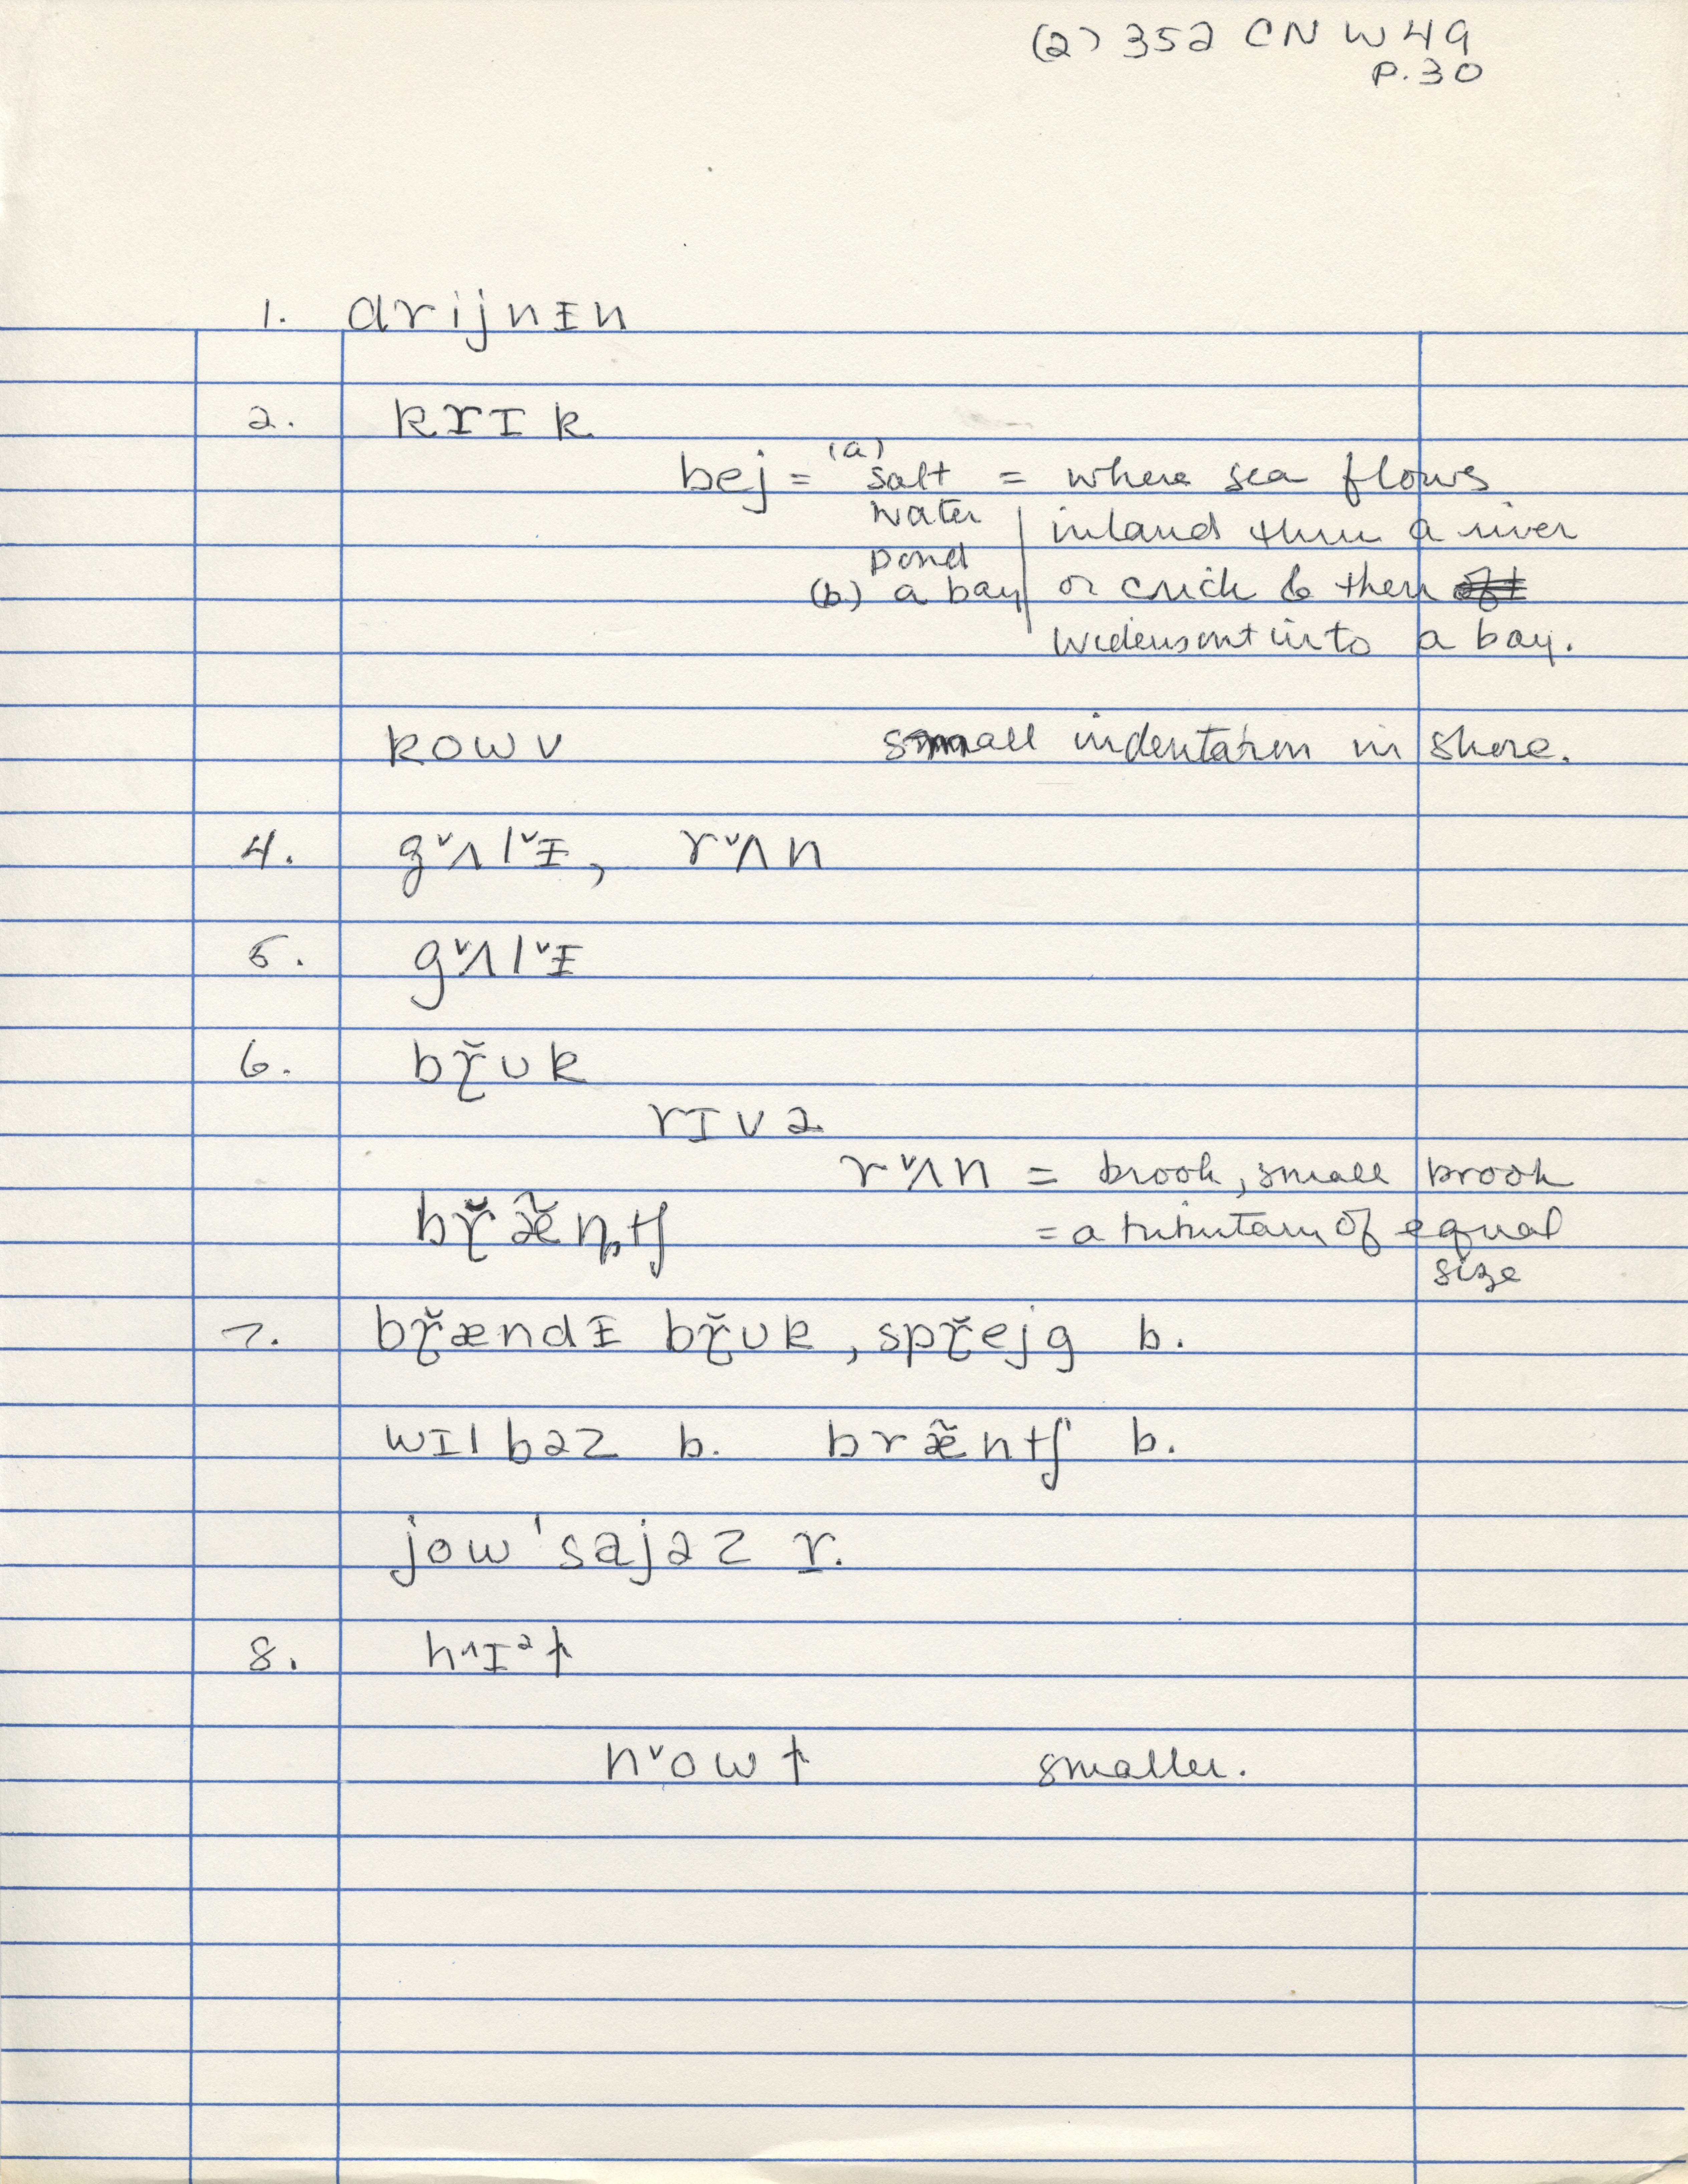 (2) 352 CN W49
P. 30
1. drijnɪ̵n
2. krɪk
bej = (a) salt = where sea flows
water inland thru a river
pond
(b.) a bay or crick & then
widens out into a bay.
kowv small indentation in shore.
4. gˇʌlˇɪ̵, rˇʌn
5. gˇʌlˇɪ̵
6. bɽ̌ʊk
rɪvə
rˇʌn = brook, small brook
bɽ̌æ̃n̡tʃ = a tributary of equal
size
7. bɽ̌ændɪ̵ bɽ̌ʊk, spɽ̌ejg b.
wɪlbəz b. bræ̃ntʃ b.
jow'sajəz r.
8. h^ɪᵊt
nˇowt smaller.